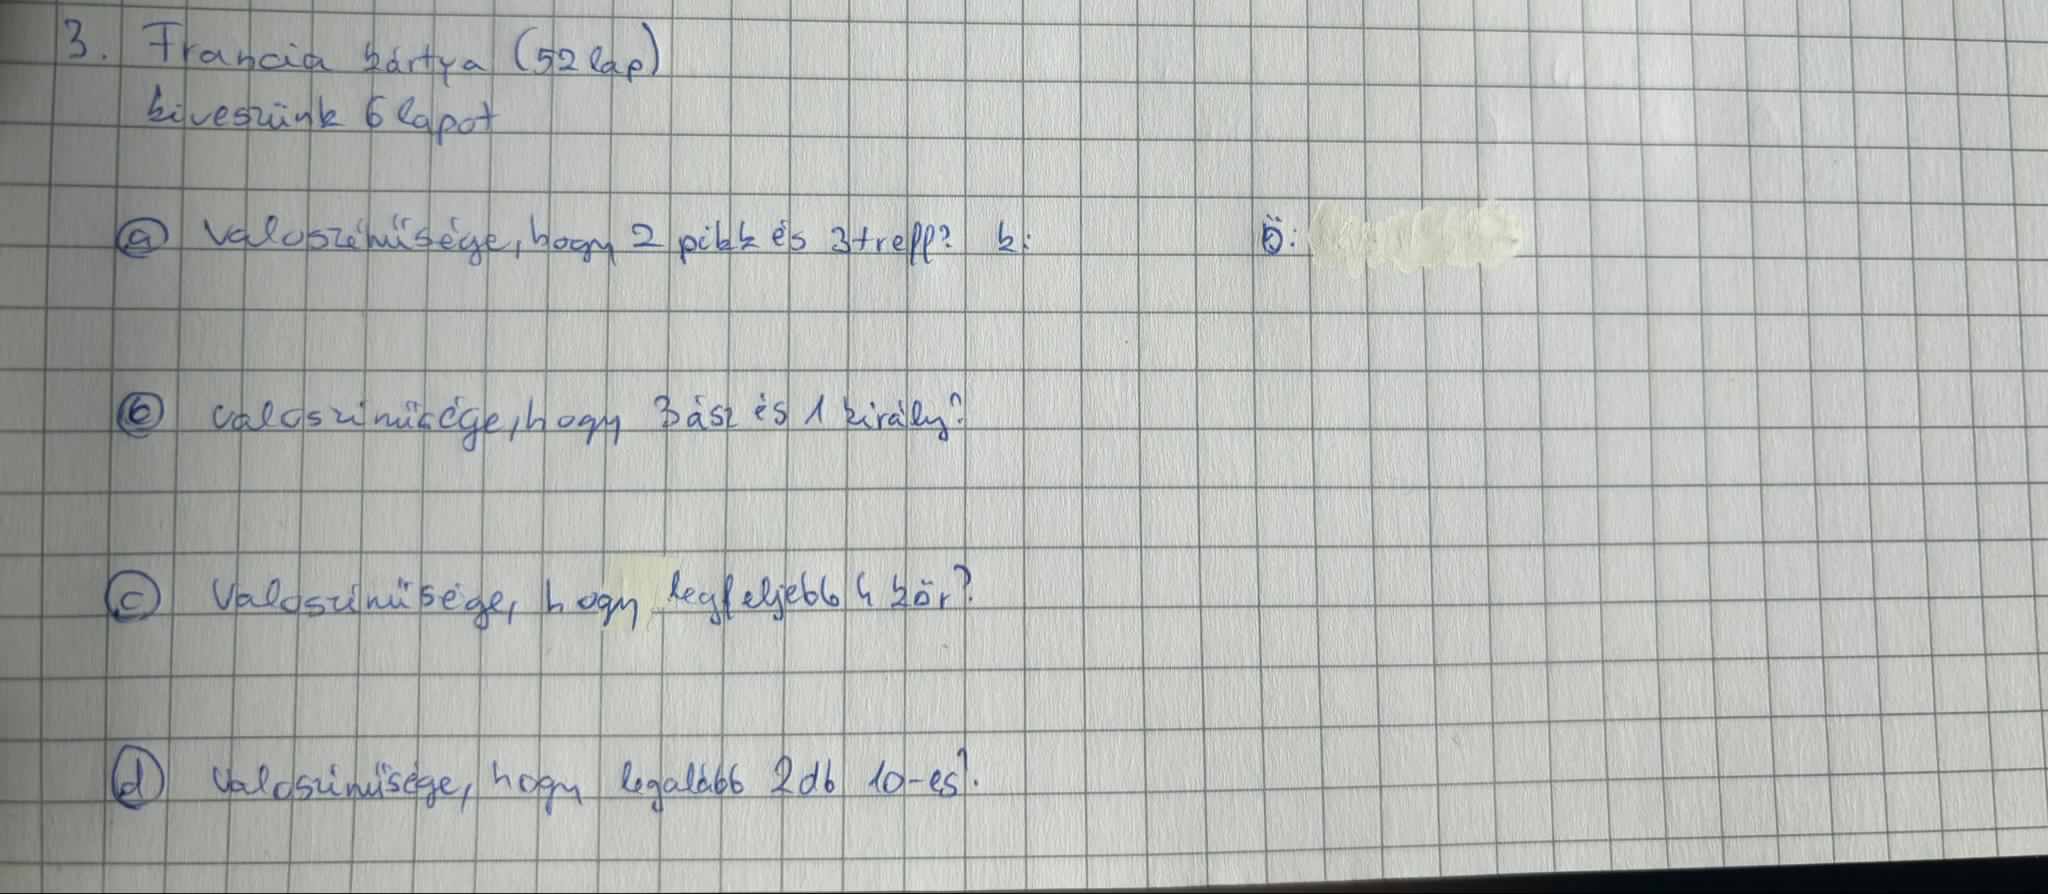 3. Francia kártya (52 lap)
kiveszünk 6 lapot
a valószínűsége, hogy 2 pikk és 3 treff? k: ö:
b valószínűsége, hogy 3 ász és 1 király?
c valószínűsége, hogy legfeljebb 4 kör?
d valószínűsége, hogy legalább 2db 10-es?